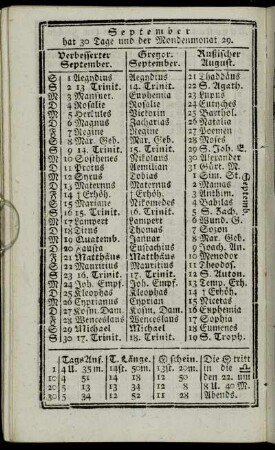 September
hat 30 Tage und der Mondenmonat 29.
Verbesserter September. Gregor. September. Rußischer August.
S 1 Aegydius Aegydius 21 Thaddäus
S 2 13. Trinit. 14. Trinit. 22 S. Agath.
M 3 Mansuet. Euphemia 23 Lupus
D 4 Rosalie Rosalie 24 Eutyches
M 5 Herkules Victorin 25 Barthol.
D 6 Magnus Zacharias 26 Natalia
F 7 Regine Regine 27 Poemen
S 8 Mar. Geb. Mar. Geb. 28 Moses
S 9 14. Trinit. 15. Trinit. 29 S. Joh. E.
M 10 Sosthenes Nikolaus 30 Alexander
D 11 Protus Aemilian 31 Gürt. M.
M 12 Syrus Tobias 1 Sim. St.
D 13 Maternus Maternus 2 Mamas
F 14 † Erhöh. † Erhöh. 3 Anthim.
S 15 Mariane Nikomedes 4 Babilas
S 16 15. Trinit. 16. Trinit. 5 S. Zach.
M 17 Lampert Lampert 6 Wund. G.
D 18 Titus Thomas 7 Sozon
M 19 Quatemb. Januar 8 Mar. Geb.
D 20 Fausta Eustachius 9 Joach. An.
F 21 Matthäus Matthäus 10 Menodor
S 22 Mauritius Mauritius 11 Theodos.
S 23 16. Trinit. 17. Trinit. 12 S. Auton.
M 24 Joh. Empf. Joh. Empf. 13 Temp. Erh.
D 25 Kleophas Kleophas 14 † Erhöh.
M 26 Cyprianus Cyprian 15 Nicetas
D 27 Kosm. Dam. Kosm. Dam. 16 Euphemia
F 28 Wenceslaus Wenceslaus 17 Sophia
S 29 Michael Michael 18 Eumenes
S 30 17. Trinit. 18. Trinit. 19 S. Troph.
Septemb.
Tags Anf. T. Länge. ☉ schein. Die ☉ tritt
1 4 U. 35 m. 14 st. 50 m. 13 st. 20 m. in die ♎
10 4 51 14 18 12 50 den 22. um
20 5 13 13 34 12 8 8 U. 40 M.
30 5 34 12 52 11 28 Abends.